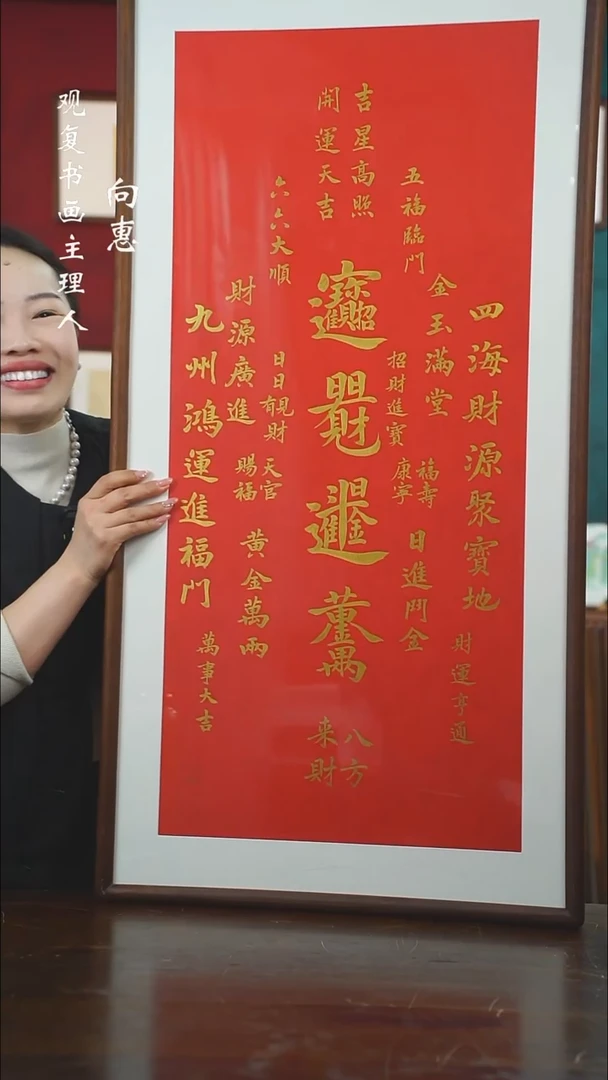 向惠
观复书画主理人
四海財源聚寶地
財運亨通
金玉滿堂
五福臨門
福壽
康寧
日進鬥金
招財進寶
吉星高照
開運天吉
八方
来財
六六大順
日日有見財
財源廣進
天官
賜福
黄金萬兩
九州鴻運進福門
萬事大吉